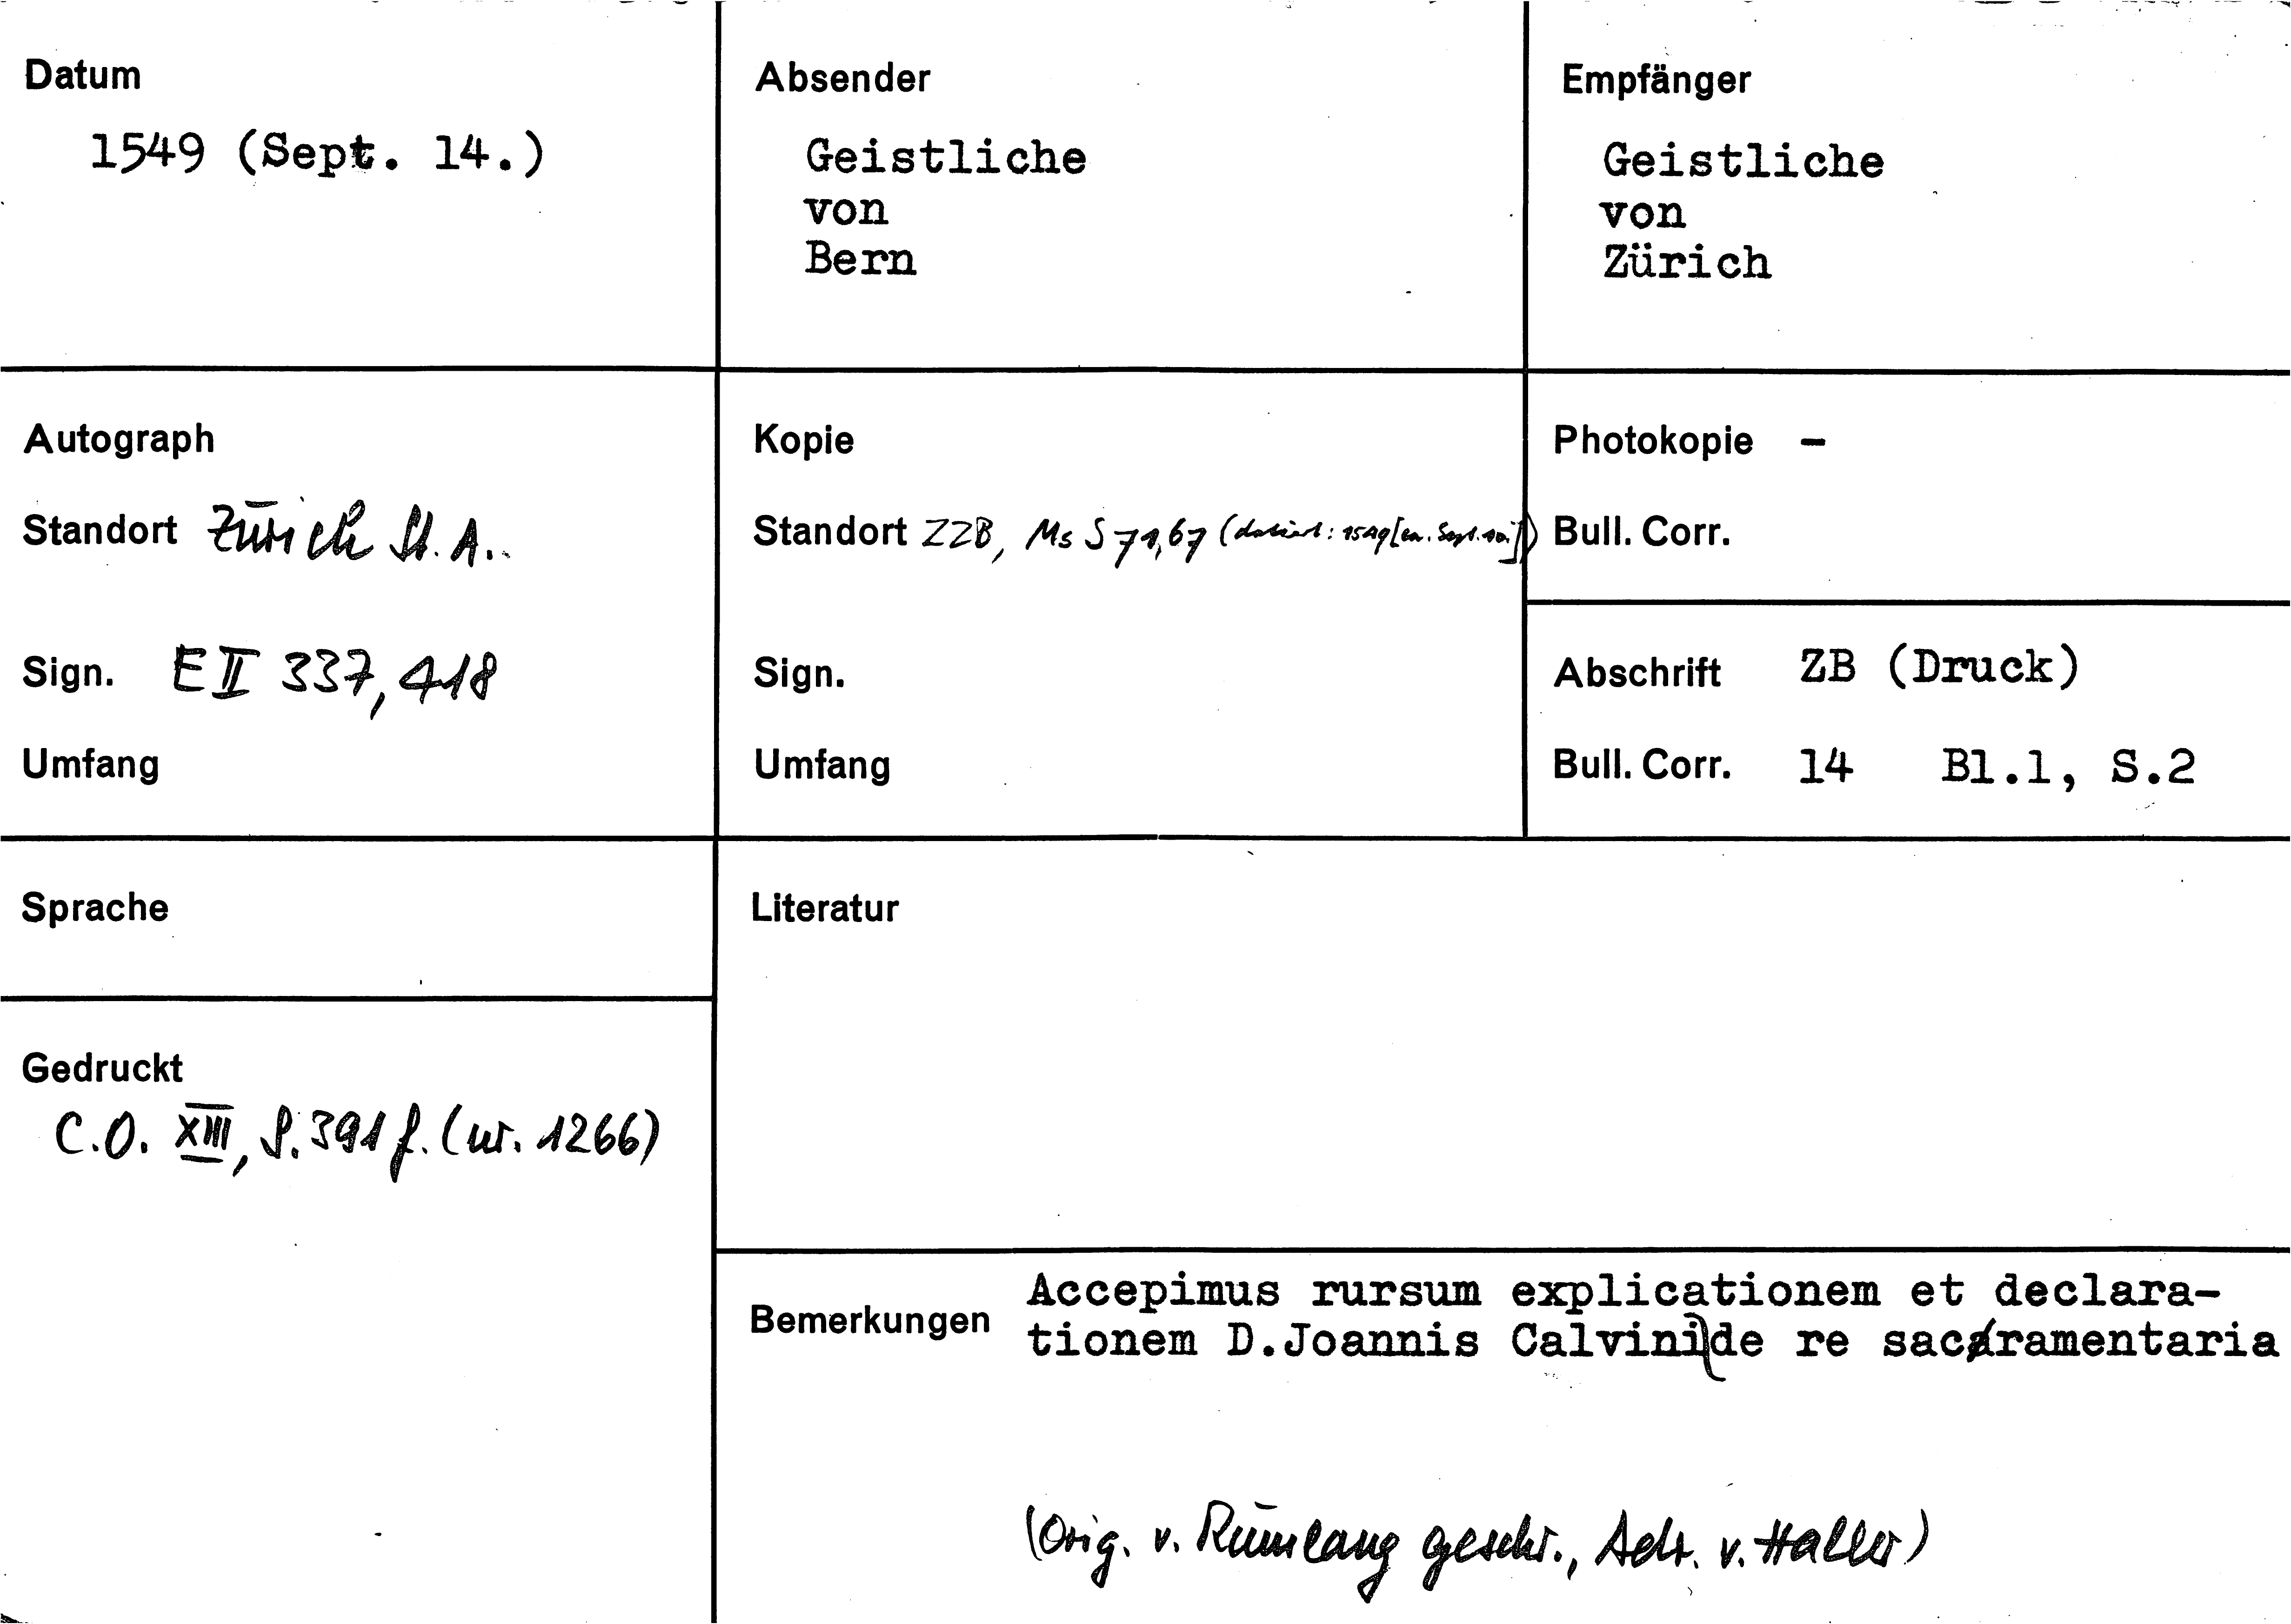 Datum
1549 (Sept. 14.)
Absender
Geistliche
von
Bern
Empfänger
Geistliche
von
Zürich
Autograph
Standort Zürich St. A.
Sign. E II 337, 418
Umfang
Kopie
Standort ZZB, Ms S 71, 67 (datiert: 1549 [ca. Sept. 10.])
Sign.
Umfang
Photokopie –
Bull. Corr.
Abschrift ZB (Druck)
Bull. Corr. 14 Bl.1, S.2
Sprache
Gedruckt
C.O. XIII, S. 391 f. (nr. 1266)
Literatur
Bemerkungen
Accepimus rursum explicationem et declara-
tionem D.Joannis Calvini de re sacramentaria
(Orig. v. Rümlang geschr., Adr. v. Haller)